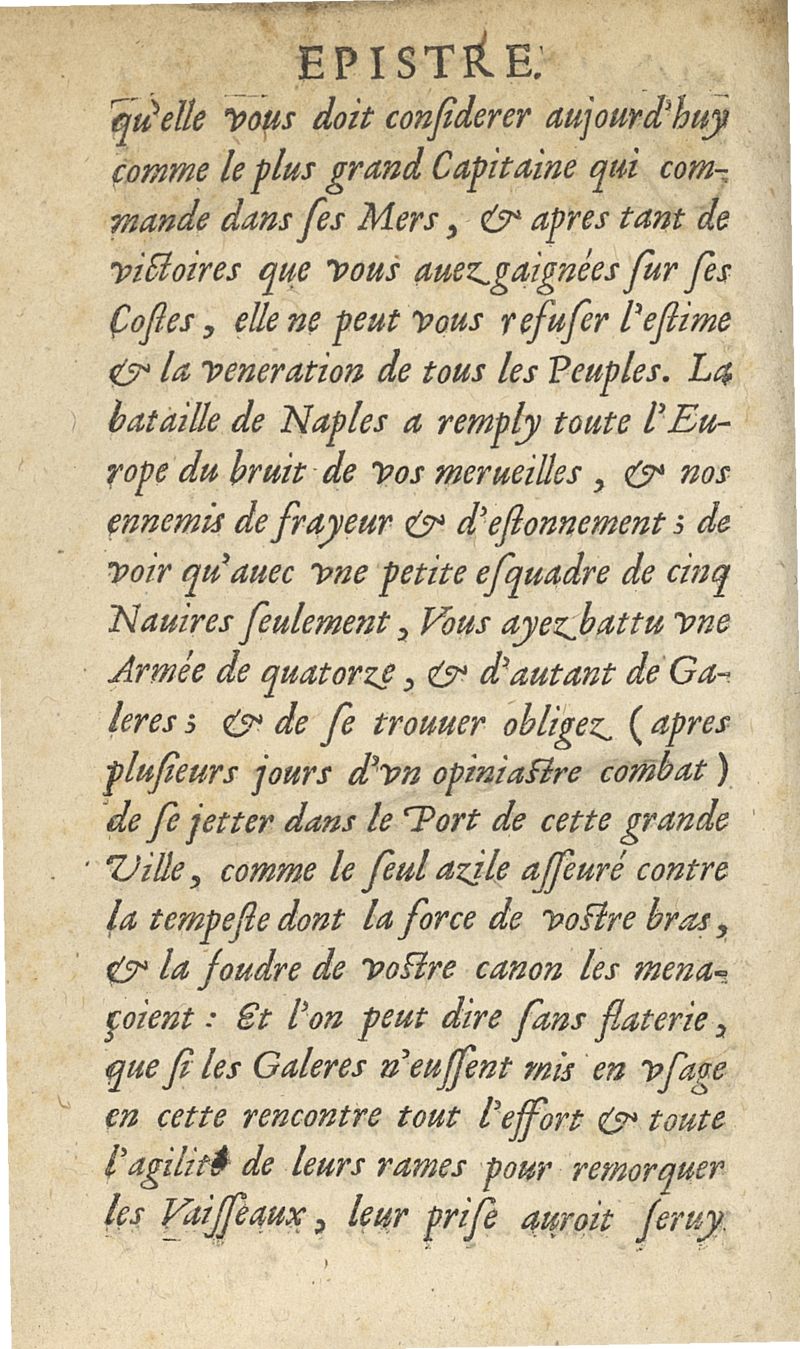 EPISTRE.
qu'elle vous doit conſiderer aujourd'huy
comme le plus grand Capitaine qui com-
mande dans ſes Mers, & apres tant de
victoires que vous auez gaignées ſur ſes
Coſtes, elle ne peut vous refuſer l'eſtime
& la veneration de tous les Peuples. La
bataille de Naples a remply toute l'Eu-
rope du bruit de vos merueilles, & nos
ennemis de frayeur & d'eſtonnement; de
voir qu'auec vne petite eſquadre de cinq
Nauires ſeulement, Vous ayez battu vne
Armée de quatorze, & d'autant de Ga-
leres; & de ſe trouuer obligez (apres
pluſieurs jours d'vn opiniaſtre combat)
de ſe jetter dans le Port de cette grande
Ville, comme le ſeul azile aſſeuré contre
la tempeſte dont la force de voſtre bras,
& la foudre de voſtre canon les mena-
çoient: Et l'on peut dire ſans flaterie,
que ſi les Galeres n'euſſent mis en vſage
en cette rencontre tout l'effort & toute
l'agilité de leurs rames pour remorquer
les Vaiſſeaux, leur priſe auroit ſeruy